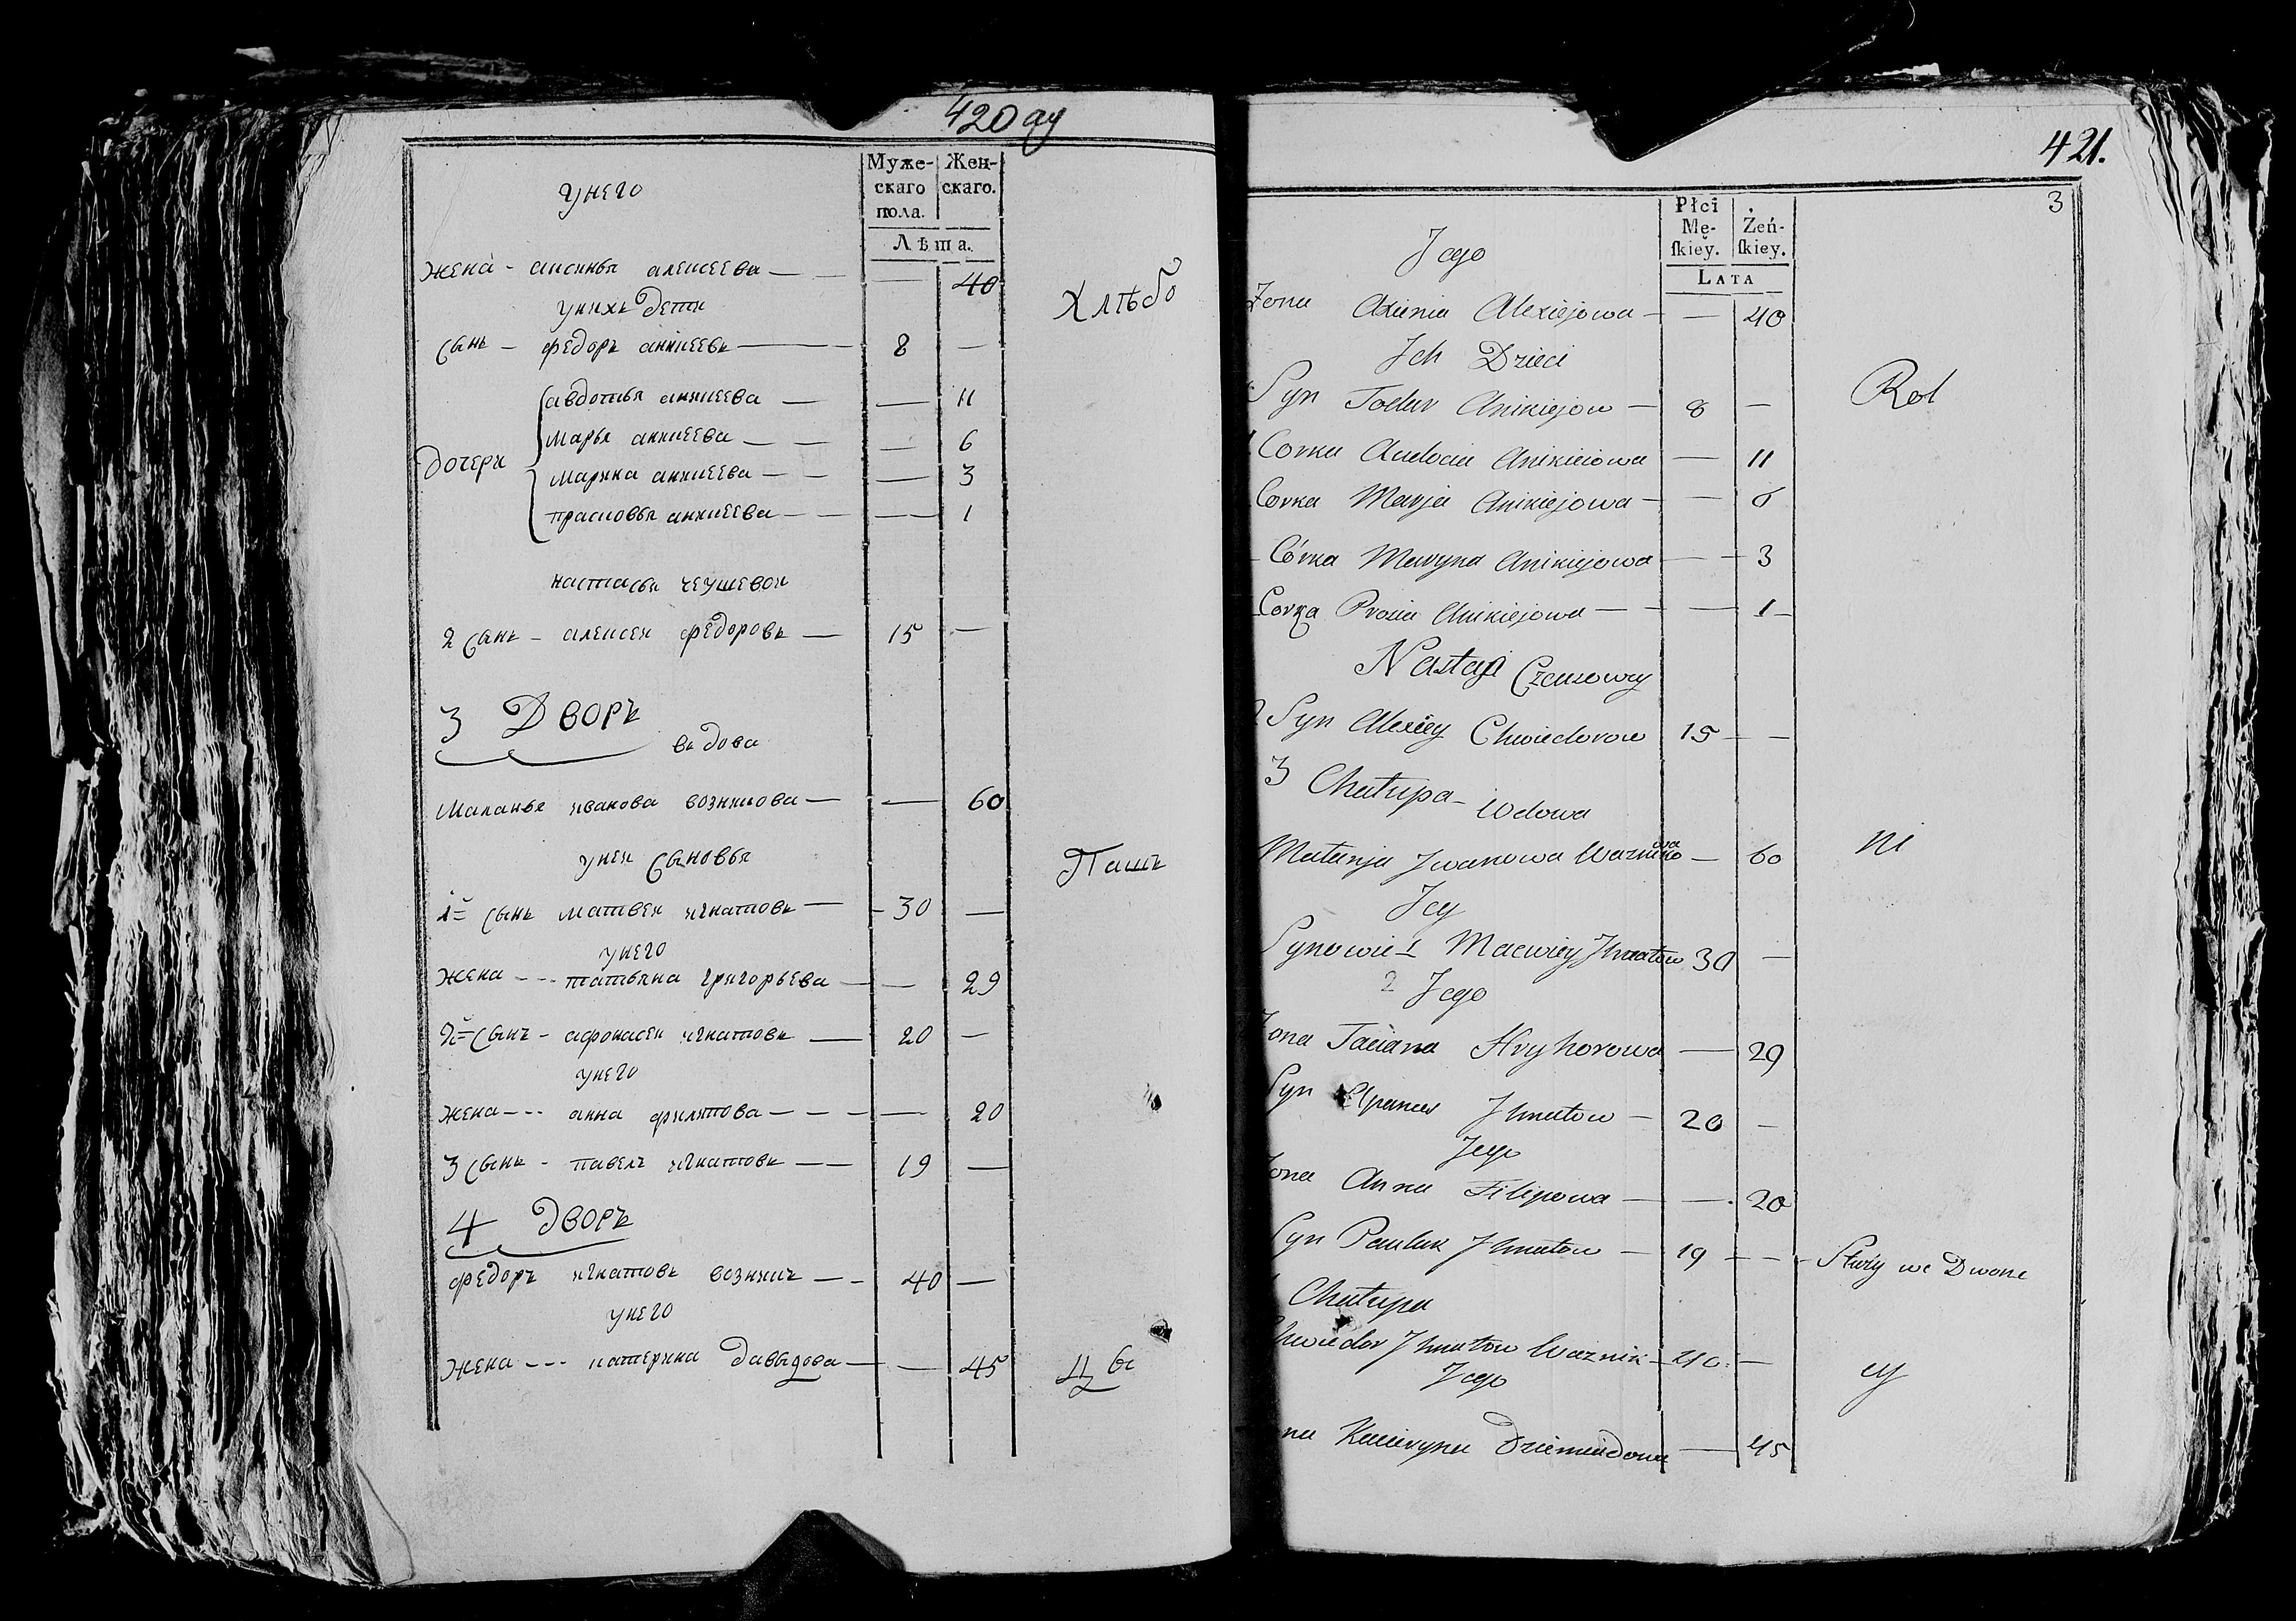 420 ау
Муже-
скаго
пола.
Жен-
скаго.
Лѣта.
унего
жена - аксинья алексеева — — 40
унихъ дети
Хлѣбо
сынъ — федоръ аникеевъ — 8 —
авдотья аникеева — — 11
марья аникеева — — — 6
дочери
марина аникеева — — — 3
прасковья аникеева — — — 1
настасьи чеушевои
2 сынъ — алексеи федоровъ — 15 —
3 Дворъ
въдова
маланья иванова возникова — — 60
унеи сыновья
Пашъ
1й сынъ матвеи игнатовъ — 30 —
унего
жена --- татьяна григорьева — — 29
2й сынъ - афонасеи игнатовъ — 20 —
унего
жена --- анна филипова — — — 20
3 сынъ - павелъ игнатовъ — — 19 —
4 дворъ
федоръ игнатовъ возникъ — - 40 —
унего
жена --- катерина давыдова — — 45
цы
421.
3
Płci
Mę-
ſkiey.
Żeń-
ſkiey.
LATA
Jego
Żona Axienia Alexiejowa — — 40
Jch Dzieci
Syn Todur Anikiejow — 8 —
Rol
Corka Audocia Anikieiowa — 11
Corka Marja Anikiejowa — — 6
Córka Maryna Anikiejowa — 3
Corka Prosia Anikiejowa — — 1
Nastazi Czeuszowey
2 Syn Alexiey Chwiedorow 15 — —
3 Chałupa — Wdowa
Małanja Jwanowa Wazni — 60
ni
Jey
Synowie 1 Maciey Jhnatow 30 —
2 Jego
ona Taciana Hryhorowa — 29
Syn Apanas Jhnatow — 20 —
Jego
ona Anna Filipowa — — 20
Syn Pauluk Jhnatow — 19 — — Służy we Dworze
Chałupa
Chwiedor Jhnatow Waznik — 40 —
Jego
cy
na Kacieryna Dziemidowa — 45